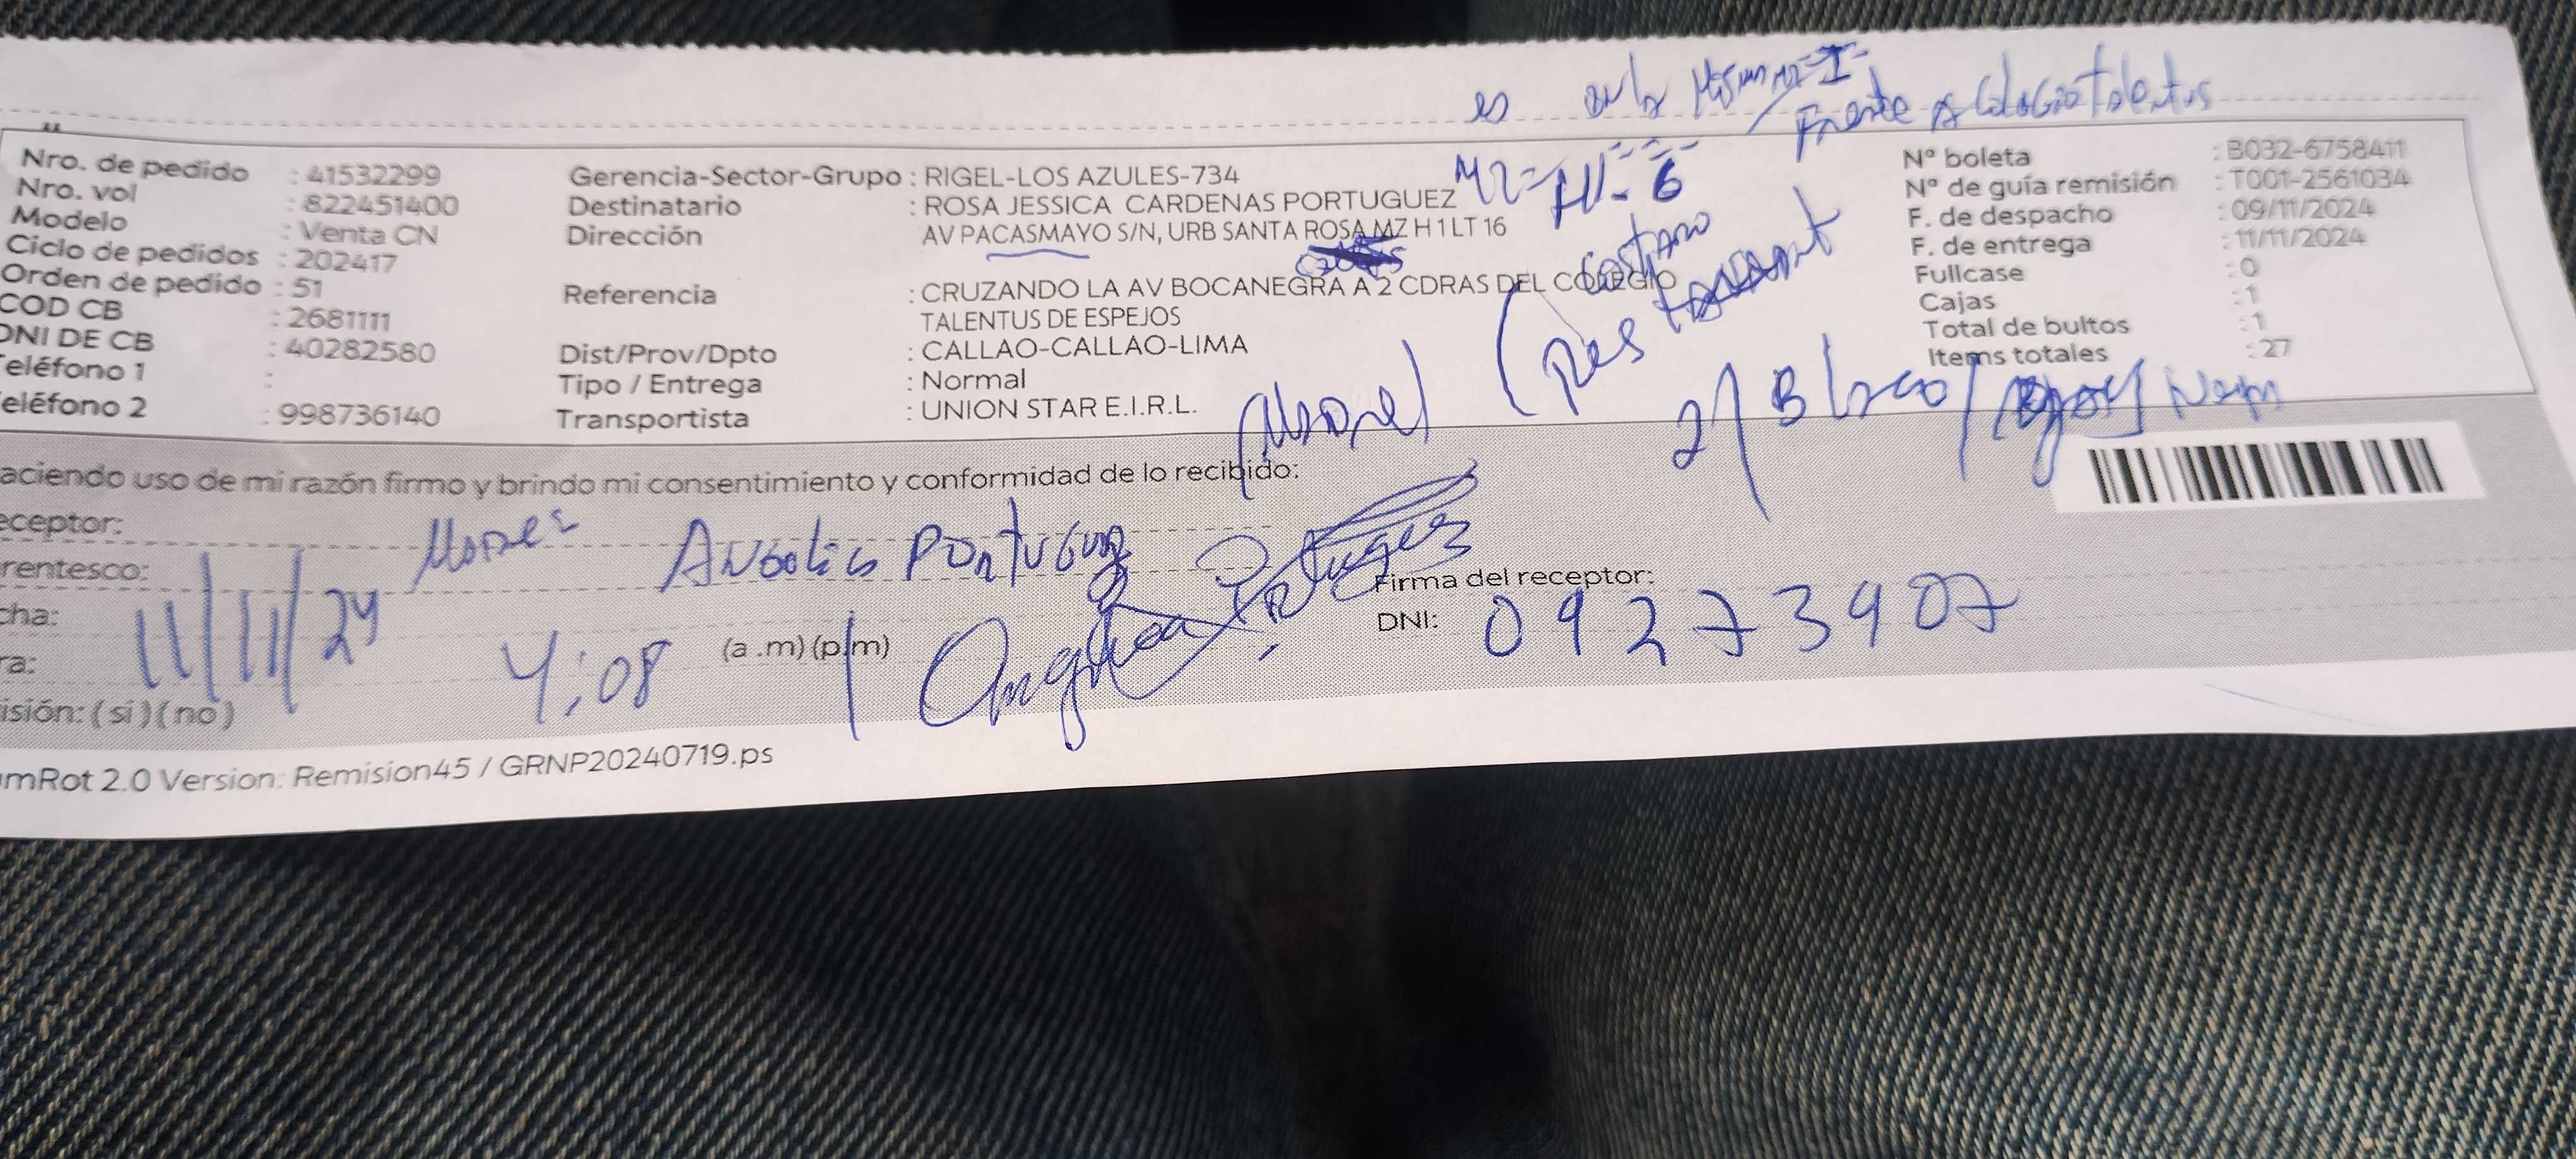 es
Frente A Colegio Talentus
Mz = H1 - 6
Nro. de pedido : 41532299
Nro. vol : 822451400
Modelo : Venta CN
Ciclo de pedidos : 202417
Orden de pedido : 51
COD CB : 2681111
DNI DE CB : 40282580
eléfono 1 :
eléfono 2 : 998736140
Gerencia-Sector-Grupo : RIGEL-LOS AZULES-734
Destinatario : ROSA JESSICA CARDENAS PORTUGUEZ
Dirección : AV PACASMAYO S/N, URB SANTA ROSA MZ H 1 LT 16
Referencia : CRUZANDO LA AV BOCANEGRA A 2 CDRAS DEL COLEGIO
TALENTUS DE ESPEJOS
Dist/Prov/Dpto : CALLAO-CALLAO-LIMA
Tipo / Entrega : Normal
Transportista : UNION STAR E.I.R.L.
N° boleta : B032-6758411
N° de guía remisión : T001-2561034
F. de despacho : 09/11/2024
F. de entrega : 11/11/2024
Fullcase : 0
Cajas : 1
Total de bultos : 1
Items totales : 27
2/ Blaco/
aciendo uso de mi razón firmo y brindo mi consentimiento y conformidad de lo recibido:
eceptor: Angelica Portuguez
rentesco:
cha: 11/11/24
ra: 4:08 (a .m) (p.m)
Angelica Portuguez
Firma del receptor:
DNI: 09273907
isión: ( sí ) ( no )
mRot 2.0 Version: Remision45 / GRNP20240719.ps